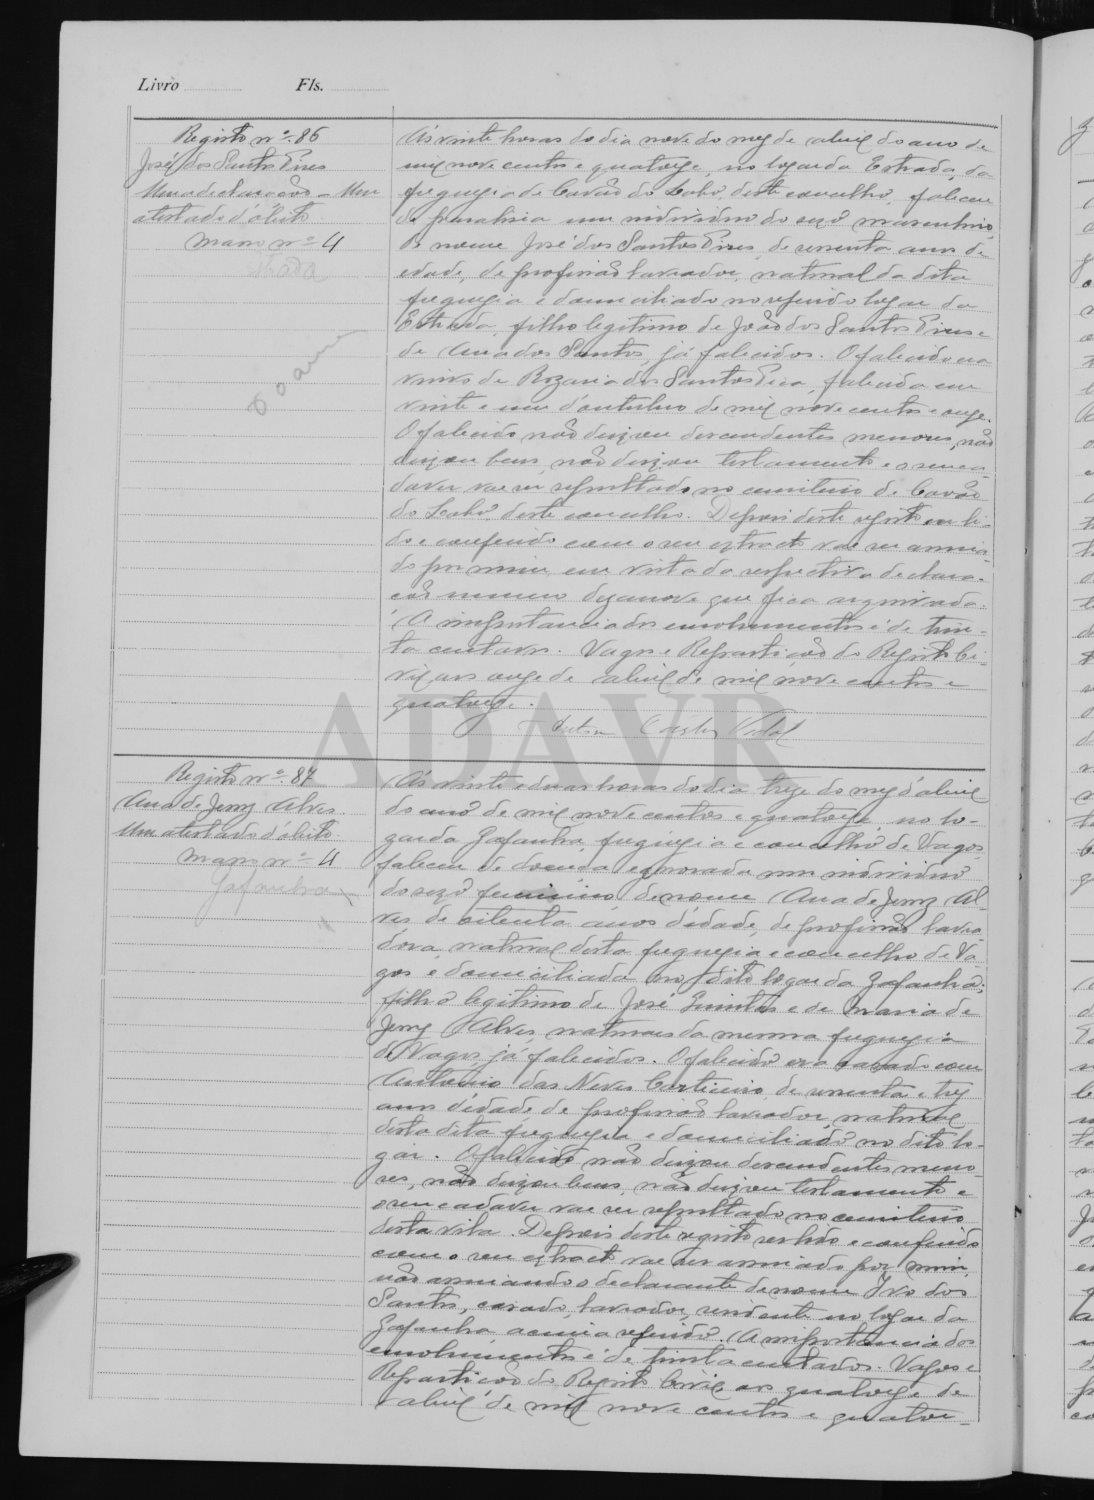 Livro Fls.
Registo nº 86
José dos Santos Pires
Uma declaração - Um
atestado d'óbito
Maço nº 4
Estrada
60 anos
Ás vinte horas do dia nove do mez de abril do ano de
mil nove centos e quatorze, no logar da Estrada, da
freguezia de Covão do Lobo, deste concelho, faleceu
de paralisia um individuo do sexo masculino
de nome José dos Santos Pires, de sessenta anos de
edade, de profissão lavrador, natural da dita
freguezia e domiciliado no referido logar da
Estrada, filho legitimo de João dos Santos Pires e
de Ana dos Santos, já falecidos. O falecido era
viuvo de Rozaria dos Santos, falecida em
vinte e um d'outubro de mil nove centos e onze.
O falecido não deixou descendentes menores, não
deixou bens, não deixou testamento e o seu ca-
daver vae ser sepultado no cemiterio de Covão
do Lobo, deste concelho. Depois deste registo ser li-
do e conferido com o seu extracto vae ser assina-
do por mim, em vista da respectiva declara-
ção numero dezanove que fica arquivada.
A importancia dos emolumentos é de trin-
ta centavos. Vagos e Repartição do Registo Ci-
vil aos onze de abril de mil nove centos e
quatorze.
ADAVR
Registo nº 87
Ana de Jesus Alves.
Um atestado d'óbito.
Maço nº 4
Gafanha
Ás vinte e duas horas do dia treze do mez d'abril
do ano de mil nove centos e quatorze, no lo-
gar da Gafanha, freguezia e concelho de Vagos
faleceu de doença ignorada um individuo
do sexo feminino, de nome Ana de Jesus Al-
ves, de oitenta anos d'idade, de profissão lavra-
dora, natural desta freguezia e concelho de Va-
gos e domiciliada no dito logar da Gafanha;
filha legitima de José e de Maria de
Jesus Alves, naturaes da mesma freguezia
de Vagos, já falecidos. O falecido era casado com
Antonio das Neves, de sessenta e trez
anos d'idade, de profissão lavrador, natural
desta dita freguezia e domiciliado no dito lo-
gar. O falecido não deixou descendentes meno-
res, não deixou bens, não deixou testamento e
o seu cadaver vae ser sepultado no cemiterio
desta vila. Depois deste registo ser lido e conferido
com o seu extracto vae ser assinado por mim,
não assinando o declarante de nome Ivo dos
Santos, casado, lavrador, residente no logar da
Gafanha, acima referido. A importancia dos
emolumentos é de trinta centavos. Vagos e
Repartição do Registo Civil aos quatorze de
abril de mil nove centos e quator-